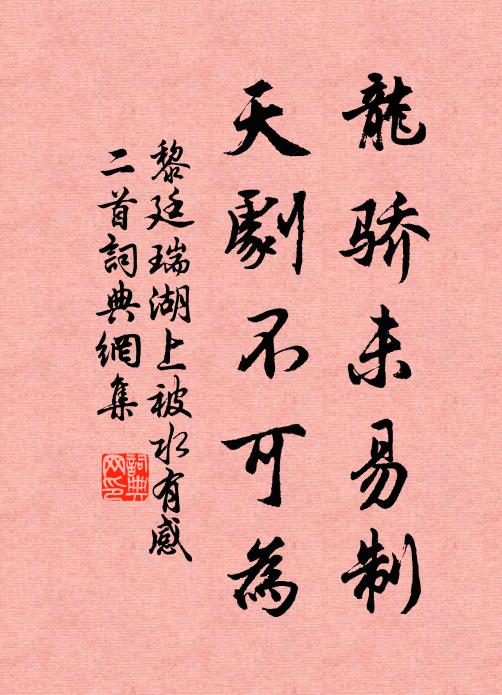 龍骄未易制
天劇不可為
黎廷瑞湖上被水有感
二首詞典網集
詞典網印